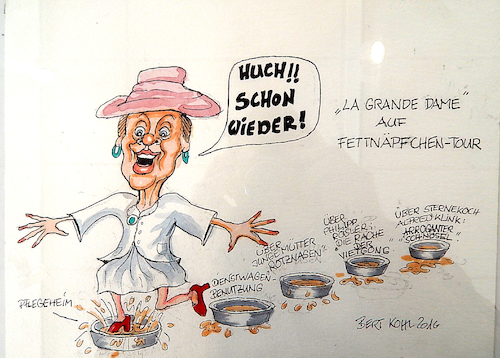 HUCH!!
SCHON
WIEDER!
„LA GRANDE DAME"
AUF
FETTNÄPFCHEN-TOUR
PFLEGEHEIM
DIENSTWAGEN-
BENUTZUNG
ÜBER
JUNGE MÜTTER
ÜBER
PHILIPP
RÖSLER:
„DIE RACHE
DER
VIETCONG"
ÜBER STERNEKOCH
ALFRED KLINK:
„ARROGANTER
SCHNÖSEL"
BERT KOHL 2016